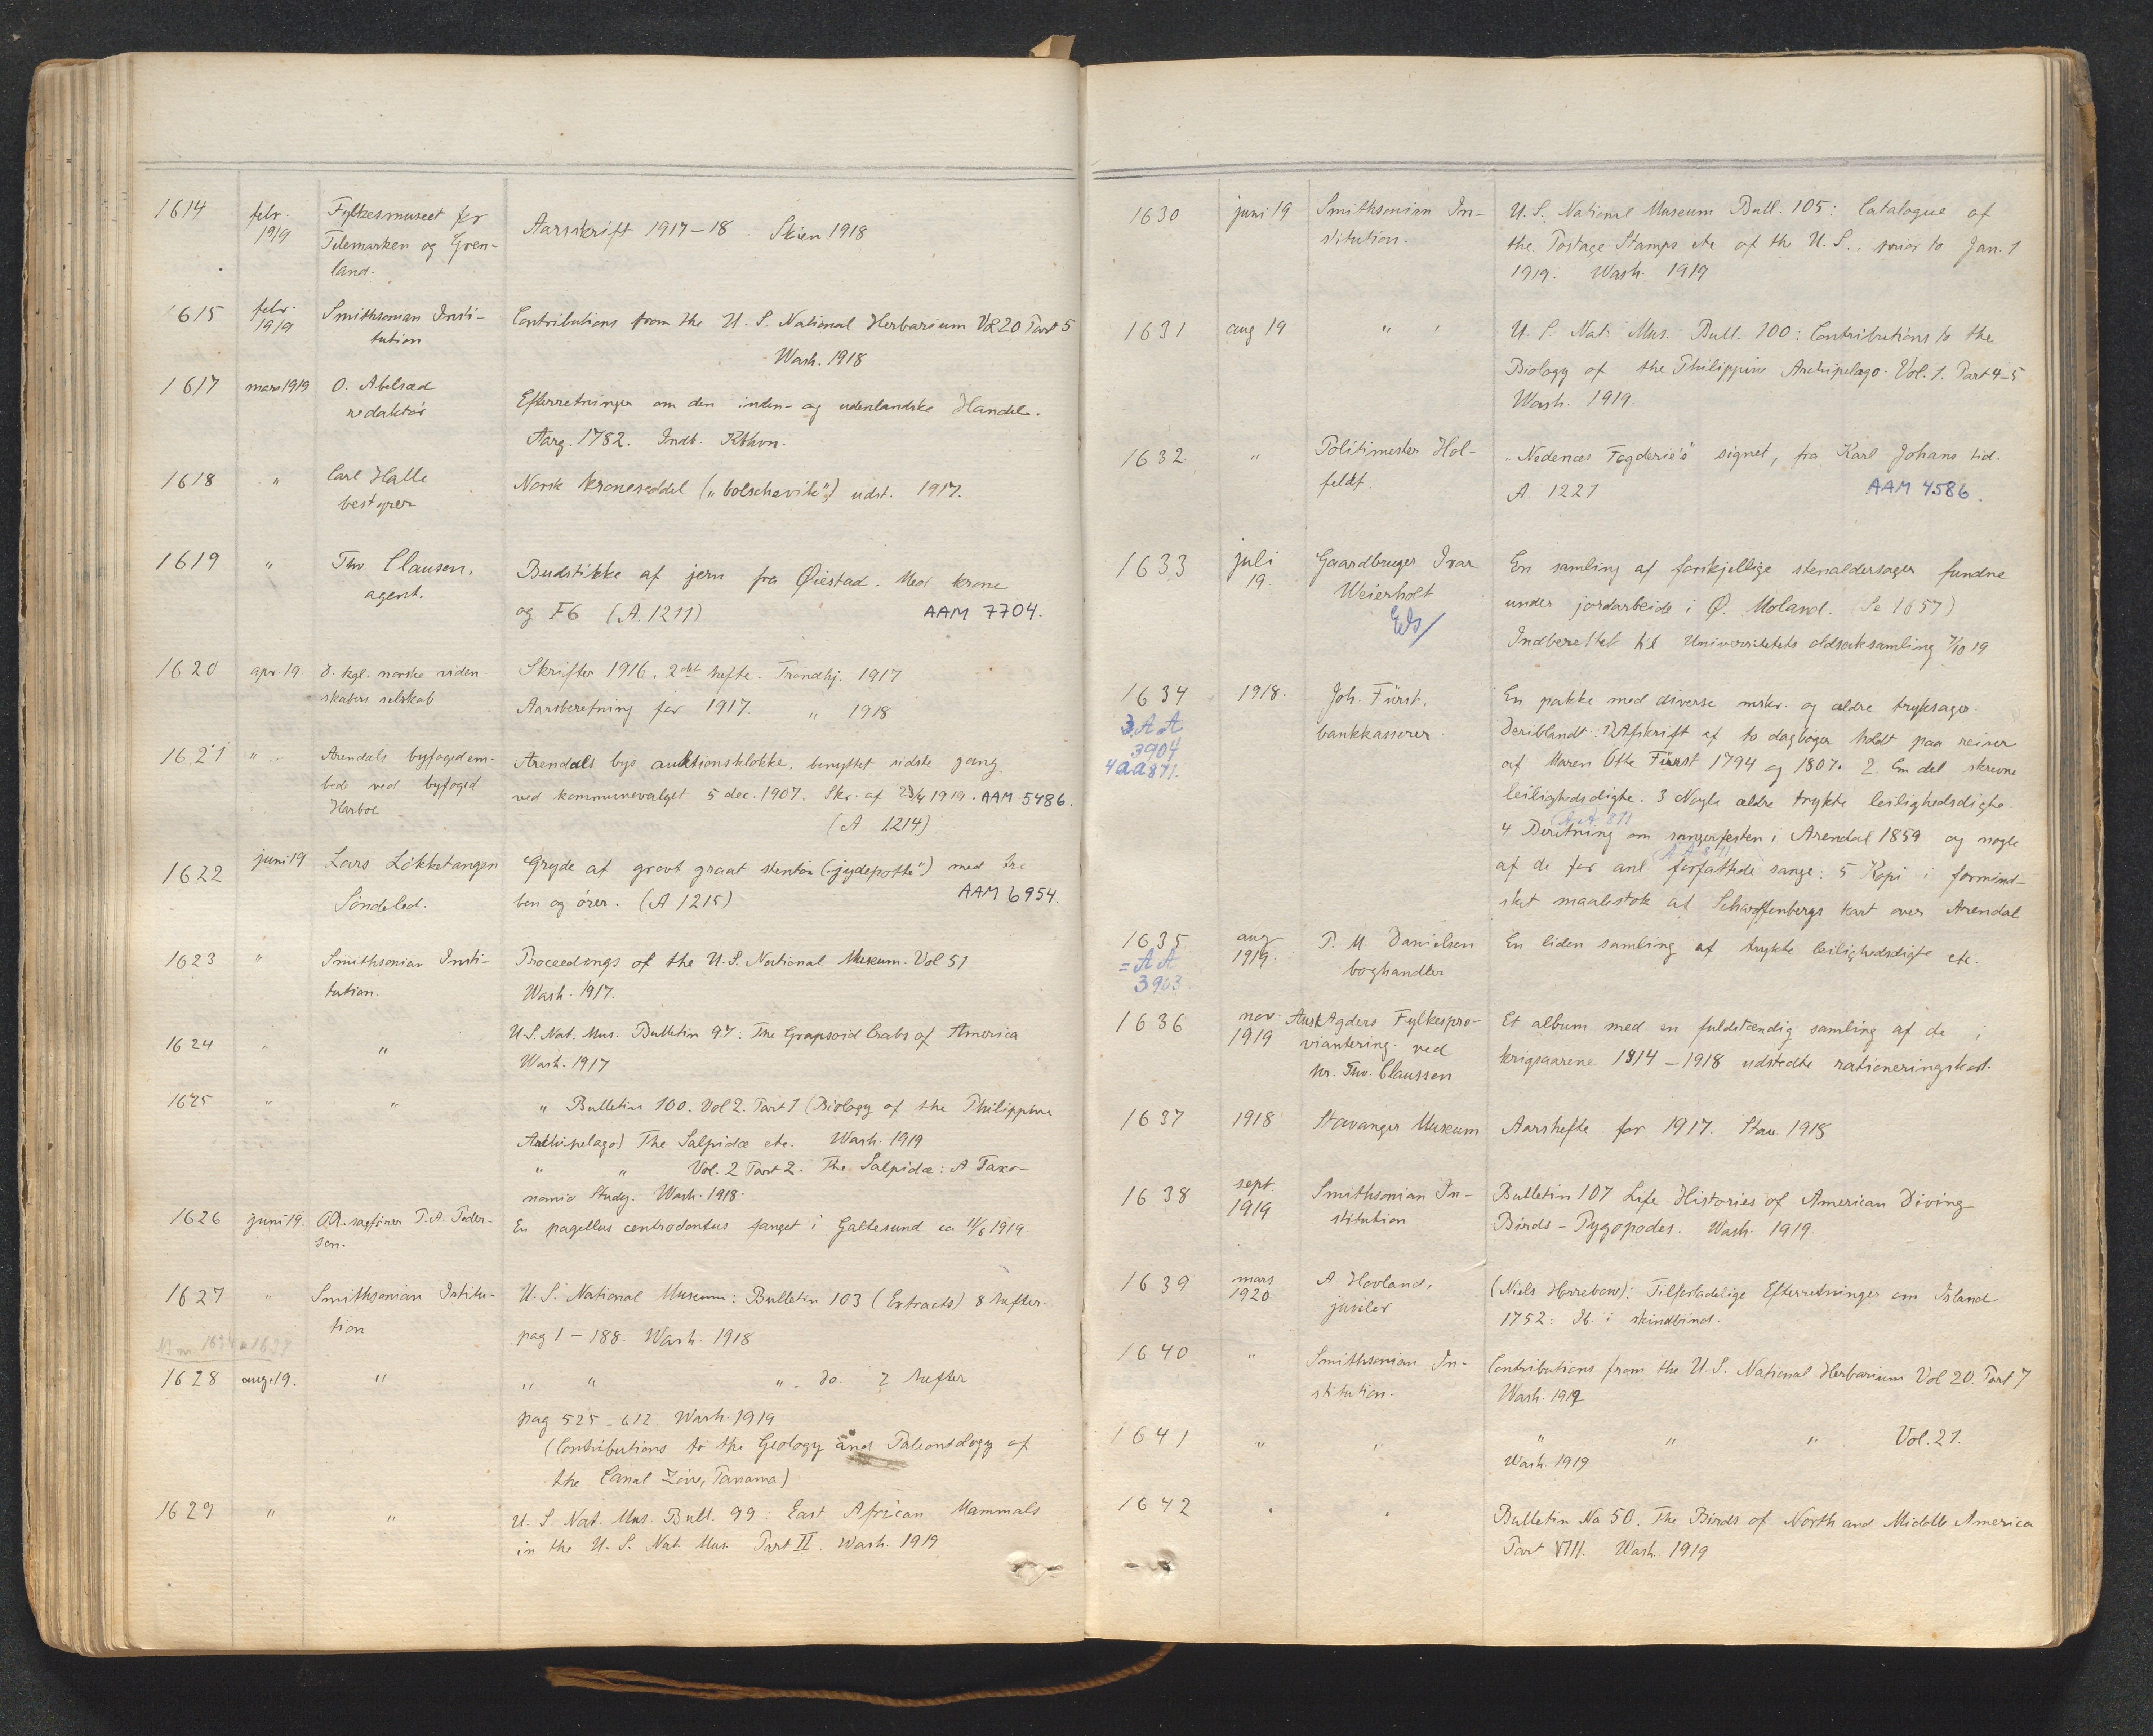 1614 febr. 1919 Fylkesmuseet for Telemarken og Grenland. Aarsskrift 1917-18. Skien 1918
1615 febr. 1919 Smithsonian Institution Contributions from the U. S. National Herbarium Vol 20 Part 5
Wash. 1918
1617 mars 1919 O. Abelsæd redaktør Efterretninger om den inden- og udenlandske Handel.
Aarg. 1782. Indb. Kbhvn.
1618 " Carl Halle bestyrer Norsk kroneseddel („bolschevik") udst. 1917.
1619 " Thv. Clausen, agent. Budstikke af jern fra Øiestad. Med krone
og F6 (A. 1211) AAM 7704.
1620 apr. 19 D. kgl. norske videnskabers selskab Skrifter 1916. 2det hefte. Trondhj. 1917
Aarsberetning for 1917. " 1918
1621 " Arendals byfogedembede ved byfoged Harboe Arendals bys auktionsklokke, benyttet sidste gang
ved kommunevalget 5 dec. 1907. Skr. af 23/4 1919. AAM 5486.
(A 1214)
1622 juni 19 Lars Løkketangen Søndeled. Gryde af grovt graat stentøi („jydepotte") med tre
ben og ører. (A 1215) AAM 6954
1623 " Smithsonian Institution. Proceedings of the U. S. National Museum. Vol 51
Wash. 1917.
1624 " " U. S. Nat. Mus. Bulletin 97: The Grapsoid Crabs of America
Wash. 1917
1625 " " " Bulletin 100. Vol 2. Part 1 (Biology of the Philippine
Archipelago) The Salpidæ etc. Wash. 1919
" " Vol. 2 Part 2. The Salpidæ: A Taxonomic Study. Wash. 1918.
1626 juni 19. O.R.sagfører P. A. Pedersen. En pagellus centrodontus fanget i Galtesund ca 11/6 1919
1627 " Smithsonian Institution U. S. National Museum: Bulletin 103 (Extracts) 8 hefter.
pag 1 - 188. Wash. 1918
1628 aug. 19. " " " " do. 2 hefter
pag 525 - 612. Wash. 1919
(Contributions to the Geology and Paleontology of
the Canal Zone, Panama)
1629 " " U. S. Nat. Mus. Bull. 99: East African Mammals
in the U. S. Nat. Mus. Part II. Wash. 1919
1630 juni 19 Smithsonian Institution. U. S. National Museum Bull. 105: Catalogue of
the Postage Stamps etc of the U. S., prior to Jan. 1
1919. Wash. 1919
1631 aug 19 " " U. S. Nat. Mus. Bull. 100: Contributions to the
Biology of the Philippine Archipelago. Vol. 1. Part 4-5
Wash. 1919.
1632 " Politimester Holfeldt. „Nedenæs Fogderie's" signet, fra Karl Johans tid.
A. 1221 AAM 4586.
1633 juli 19. Gaardbruger Ivar Weierholt En samling af forskjellige stenaldersager fundne
under jordarbeide i Ø. Moland. (Se 1657)
Indberettet til Universitetets oldsaksamling 7/10 19
1634 1918. Joh. Fürst, bankkasserer. En pakke med diverse mskr. og ældre tryksager.
3.AA
3904
4 aa 871.
Deriblandt: 1) Afskrift af to dagbøger holdt paa reiser
af Maren Otte Fürst 1794 og 1807. 2. En del skrevne
leilighedsdigte. 3 Nogle ældre trykte leilighedsdigte.
4 Beretning om sangerfesten i Arendal 1859 og nogle
af de for anl. forfattede sange: 5 Kopi i formindsket maalestok af Scharffenbergs kart over Arendal
1635 aug 1919. P. M. Danielsen boghandler En liden samling af trykte leilighedsdigte etc.
= AA
3903
1636 nov. 1919 Aust Agders Fylkesproviantering. ved hr. Thv. Claussen Et album med en fuldstændig samling af de i
krigsaarene 1914 - 1918 udstedte rationeringskort.
1637 1918 Stavanger Museum Aarshefte for 1917. Stav. 1918
1638 sept. 1919 Smithsonian Institution Bulletin 107 Life Histories of American Diving
Birds - Pygopodes. Wash. 1919.
1639 mars 1920 A. Hovland, juveler (Niels Horrebow): Tilforladelige Efterretninger om Island
1752. Ib. i skindbind.
1640 " Smithsonian Institution. Contributions from the U. S. National Herbarium Vol 20. Part 7
Wash. 1919
1641 " " " " " Vol. 21.
Wash. 1919
1642 " " Bulletin No 50. The Birds of North and Middle America
Part VIII. Wash. 1919